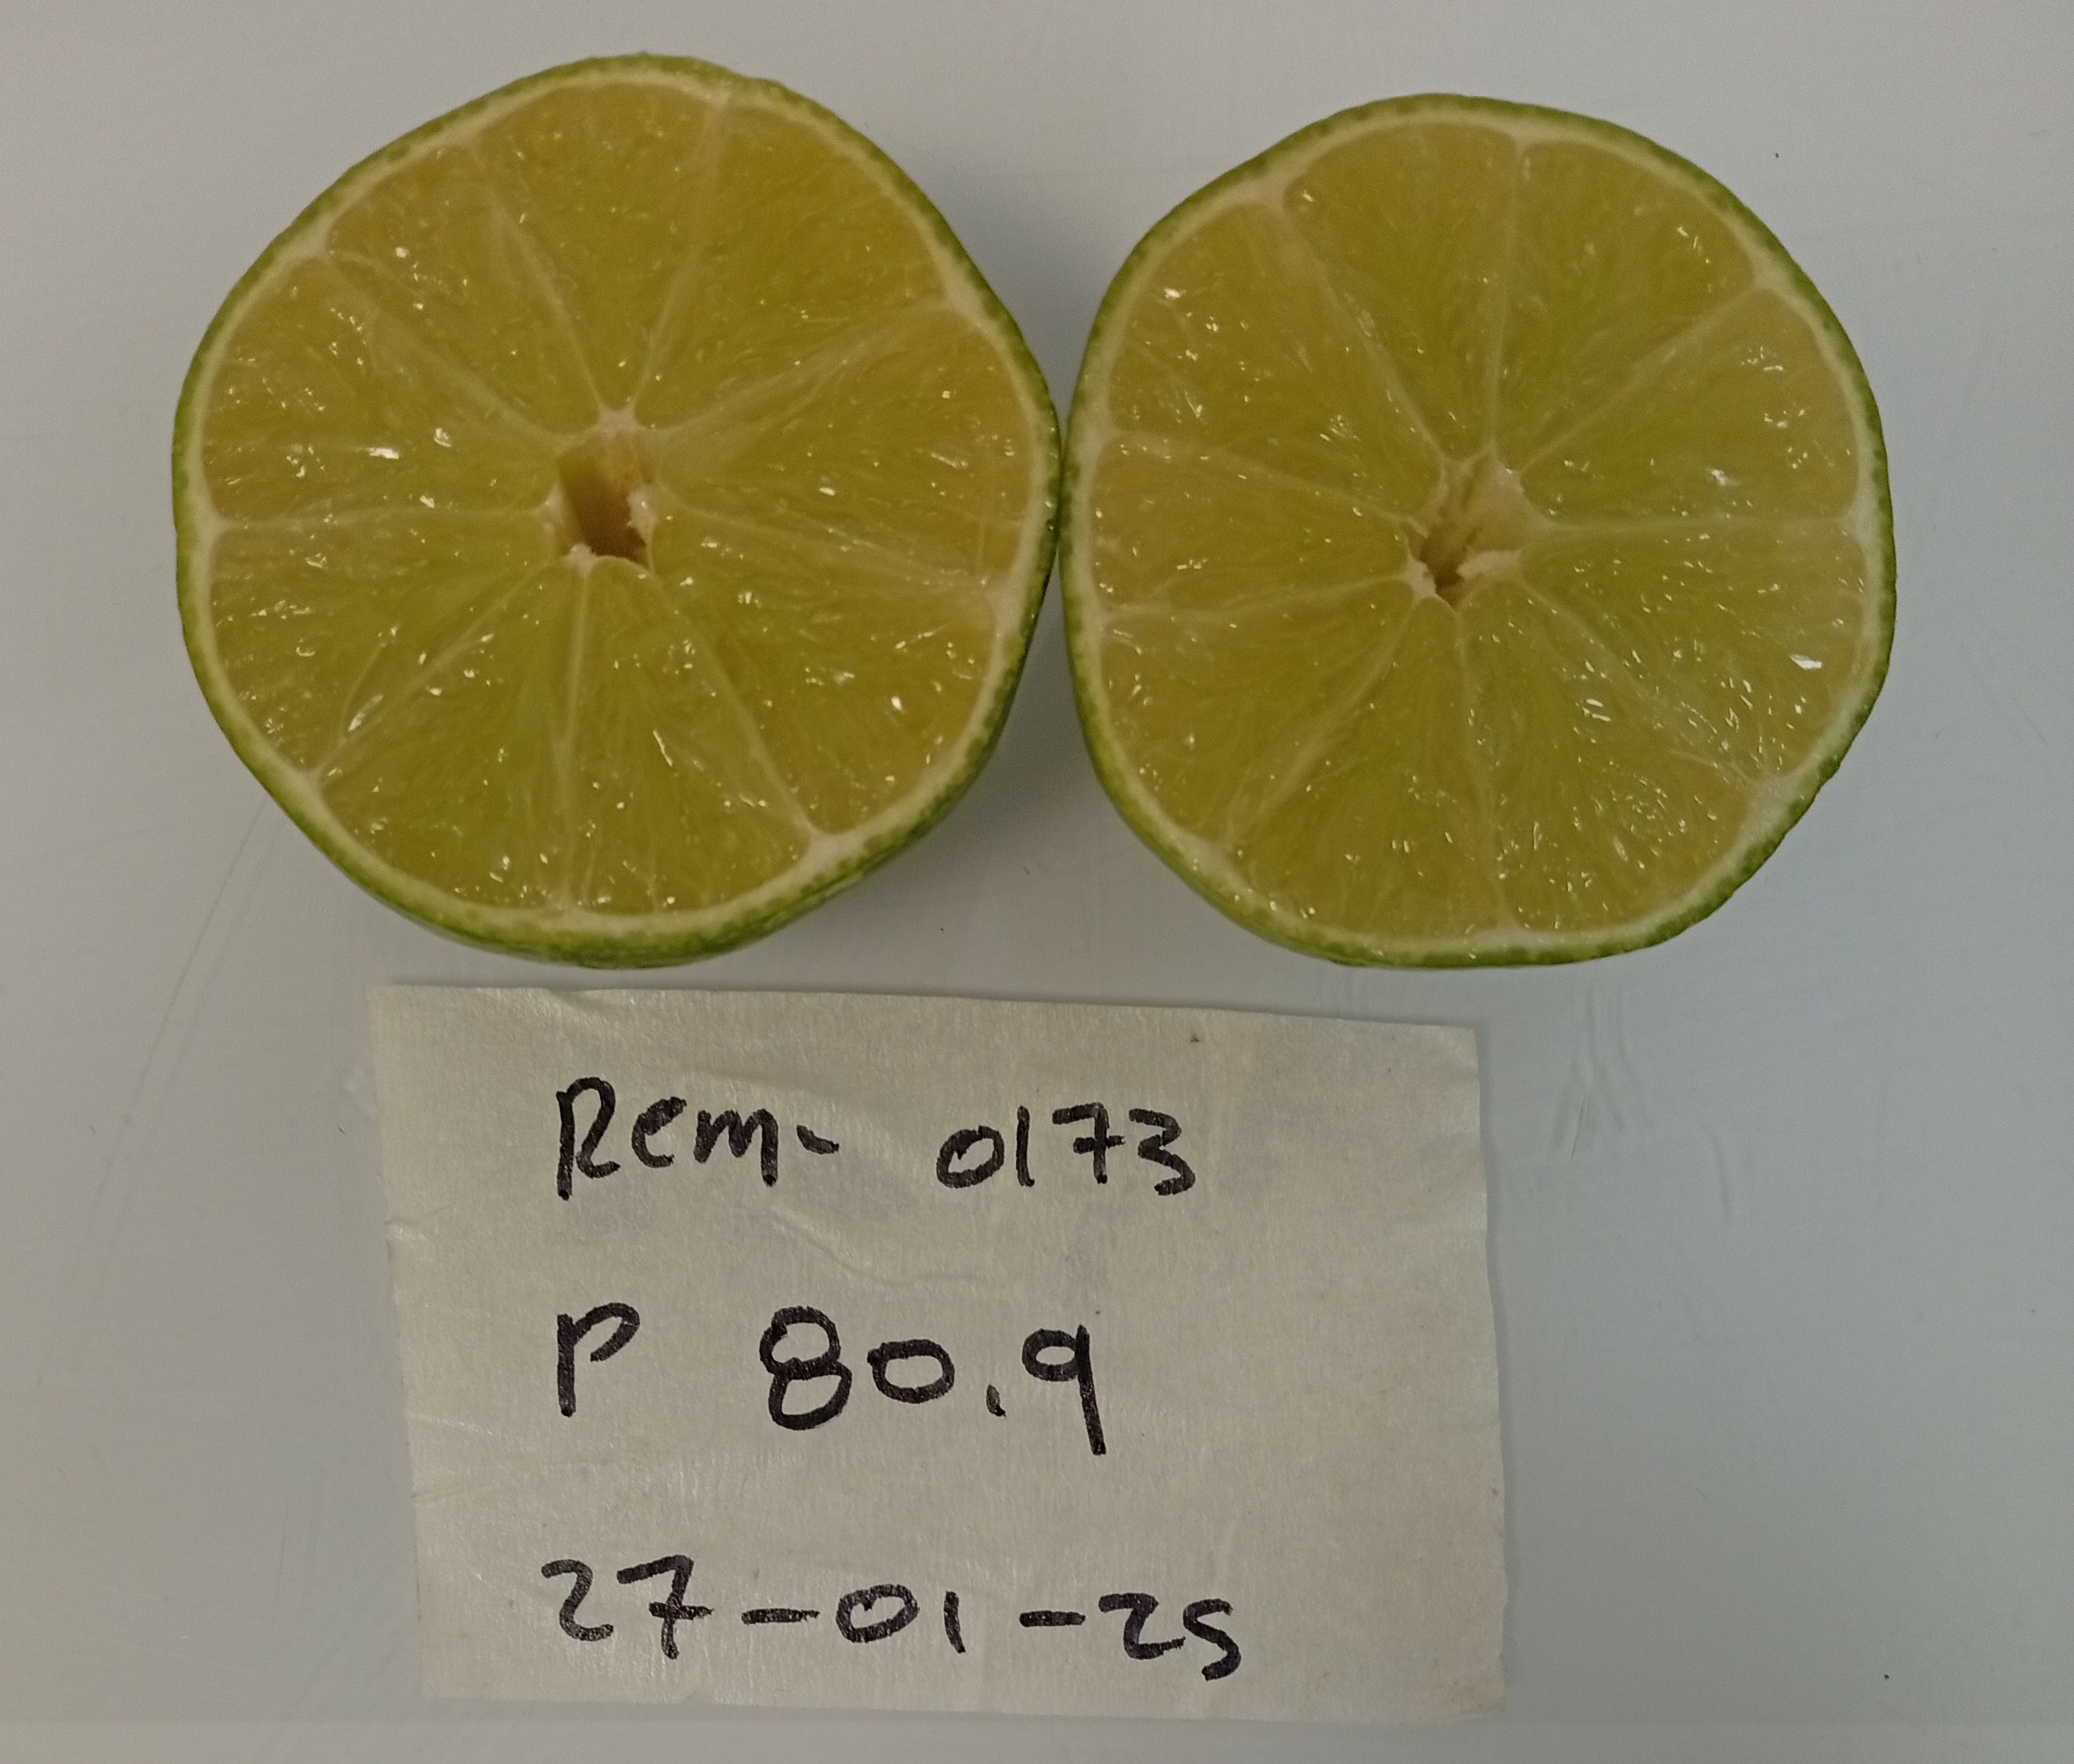 Rem- 0173
P 80.9
27-01-25